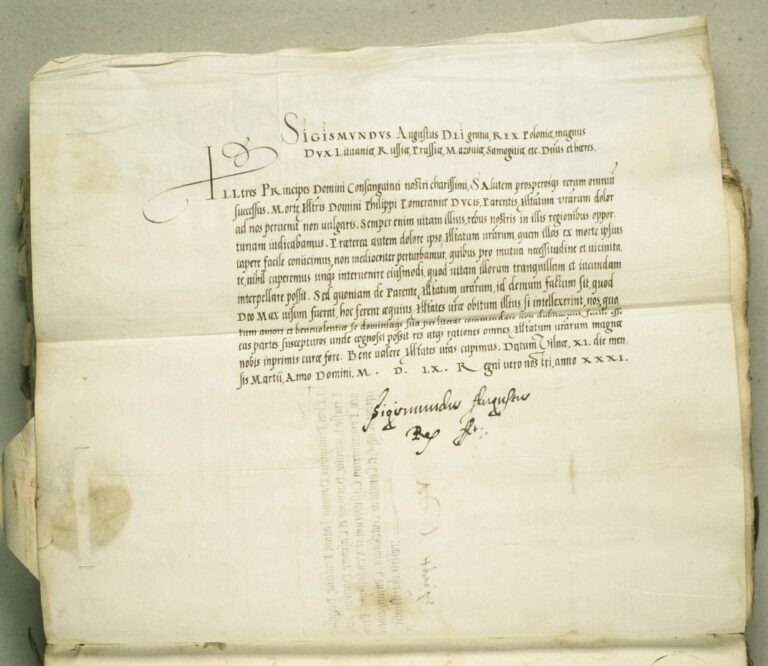 SIGISMVNDVS Augustus DEI gratia, REX Poloniæ, magnus
DVX Lituaniæ, Russiæ, Prussiæ, Mazoviæ, Samogitiæ, etc. Dñus et hæres.
ILLtres PRincipes Domini Consanguinei nostri charissimi, SAlutem prosperosq; rerum omniũ
successus. Morte Illtris Domini Philippi Pomeraniæ DVCIS, Parentis, Illtatum vrãrum dolor
ad nos peruenit non vulgaris. Semper enim vitam illius, rebus nostris in illis regionibus oppor-
tunam iudicabamus. Præterea autem dolore ipso, Illtatum vrãrum, quem illas ex morte ipsius
capere facile coniicimus, non mediocriter perturbamur, quibus pro mutua necessitudine et vicinita-
te, nihil cuperemus unq̃ intervenire eiusmodi, quod vitam illorum tranquillam et iucundam
interpellare possit. Sed quoniam de Parente, Illtatum vrãrum, id demum factum sit, quod
Deo Max visum fuerat, hoc ferent æquius Illtates vrã obitum illius si intellexerint, nos, quo-
tum amori et benevolentiæ se dominiaq; sua per literas commendare non
eas partes suscepturos fore, quo cognosci possit res atq; rationes omnes Illtatum vrãrum magnæ
nobis inprimis curæ fore. Bene valere Illtates vrãs cupimus. Datum Vilnæ, XI. die men-
sis Martii, Anno Domini, M. D. LX. Regni vero nostri, anno XXXI.
Sigismundus Augustus
Rex